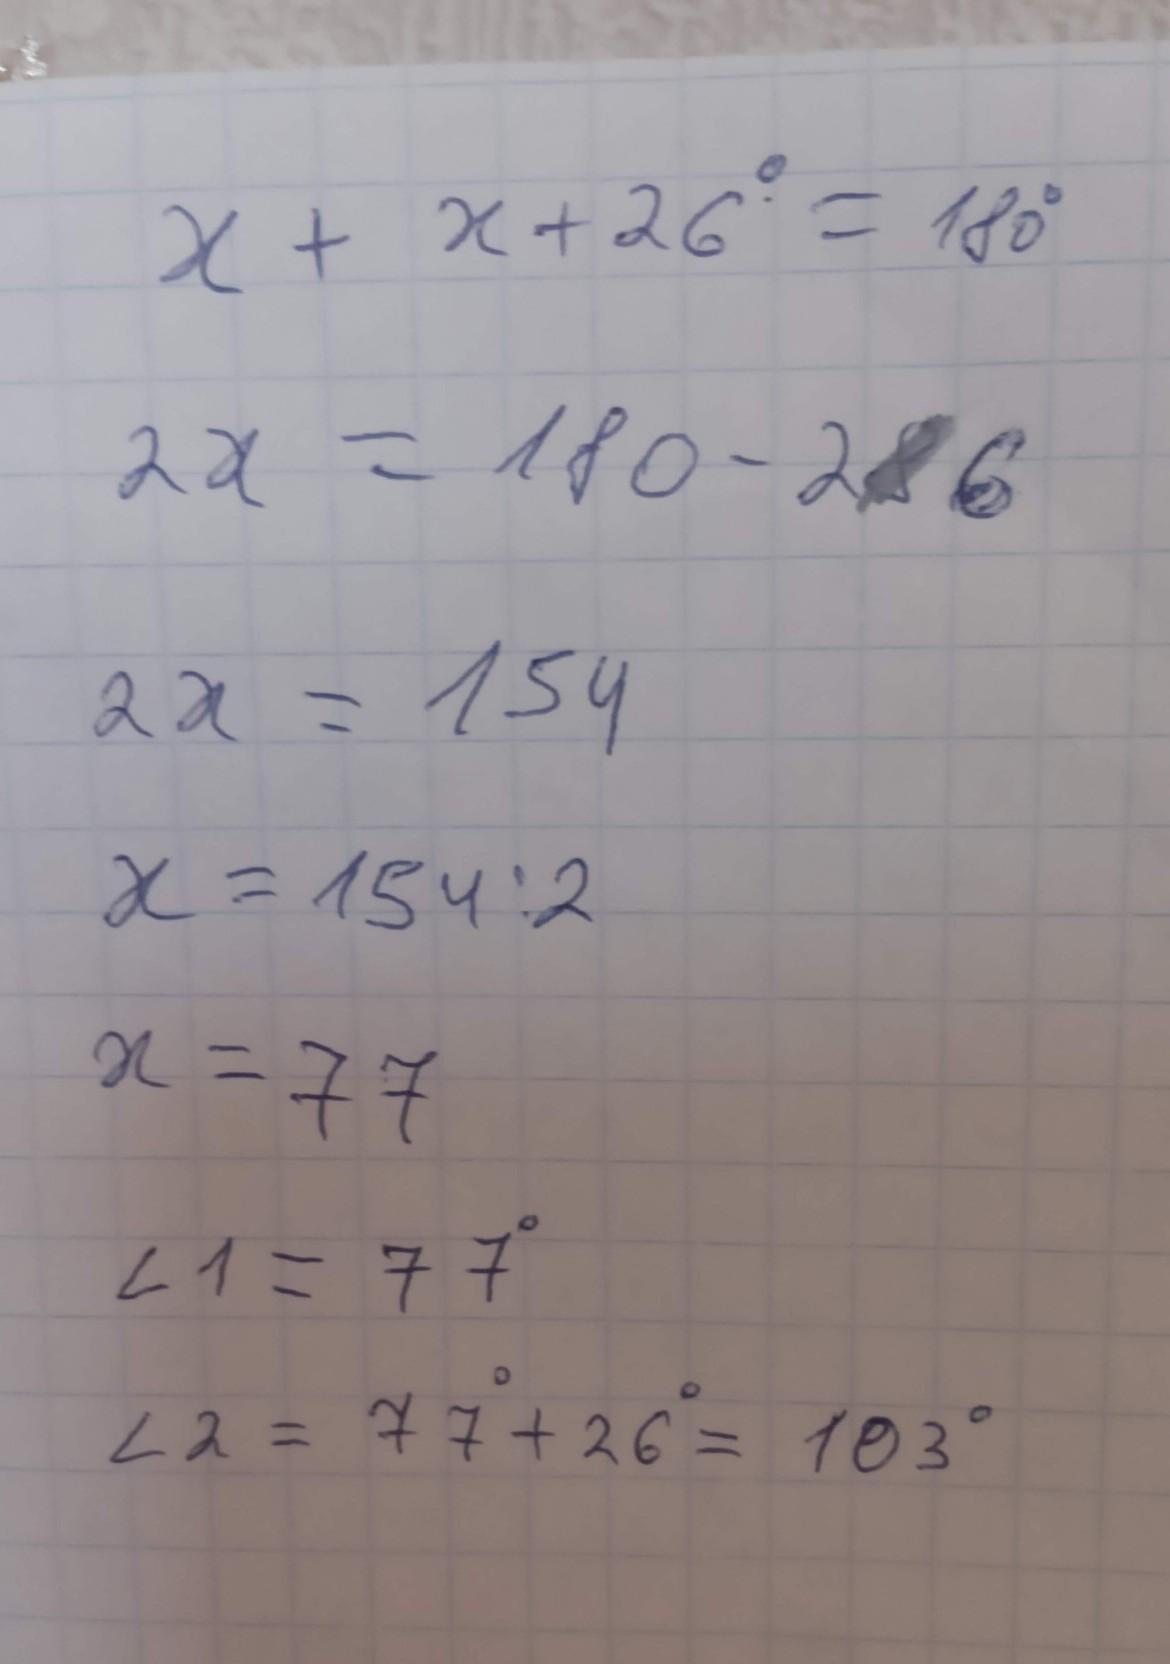 x + x + 26° = 180°
2x = 180 - 26
2x = 154
x = 154:2
x = 77
∠1 = 77°
∠2 = 77° + 26° = 103°